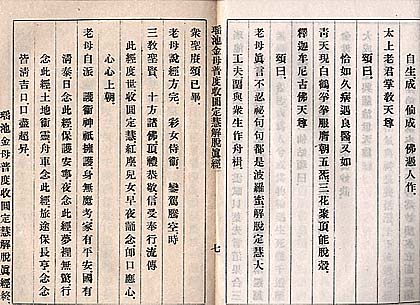 自生成。仙成。佛過人作。
太上老君掌教天尊
頌曰
恰如久病遇良醫又如
青天現白鶴拳拳服膺朝五炁三花聚頂能脫殼。
釋迦牟尼古佛天尊
頌曰
老母眞言不忍祕句句都是波羅蜜解脫定慧大
工夫闢與衆生作舟楫
瑤池金母普度收圓定慧解脫眞經
七
衆聖賡頌已畢。
老母說經方完。彩女侍衞。鸞駕騰空時
三教聖賢。十方諸佛頂禮恭敬信受奉行流傳
此經度世收圓定慧紅塵兒女早夜誦念卽口應心。
心心上朝。
老母自派 護衞神祇擁護身無魔考家有平安國有
淸泰日念此經保護安寧夜念此經夢裡無驚行
念此經土地衞靈舟車念此經旅途保長享念念
皆淸吉口口盡超昇。
瑤池金母普度收圓定慧解脫眞經終